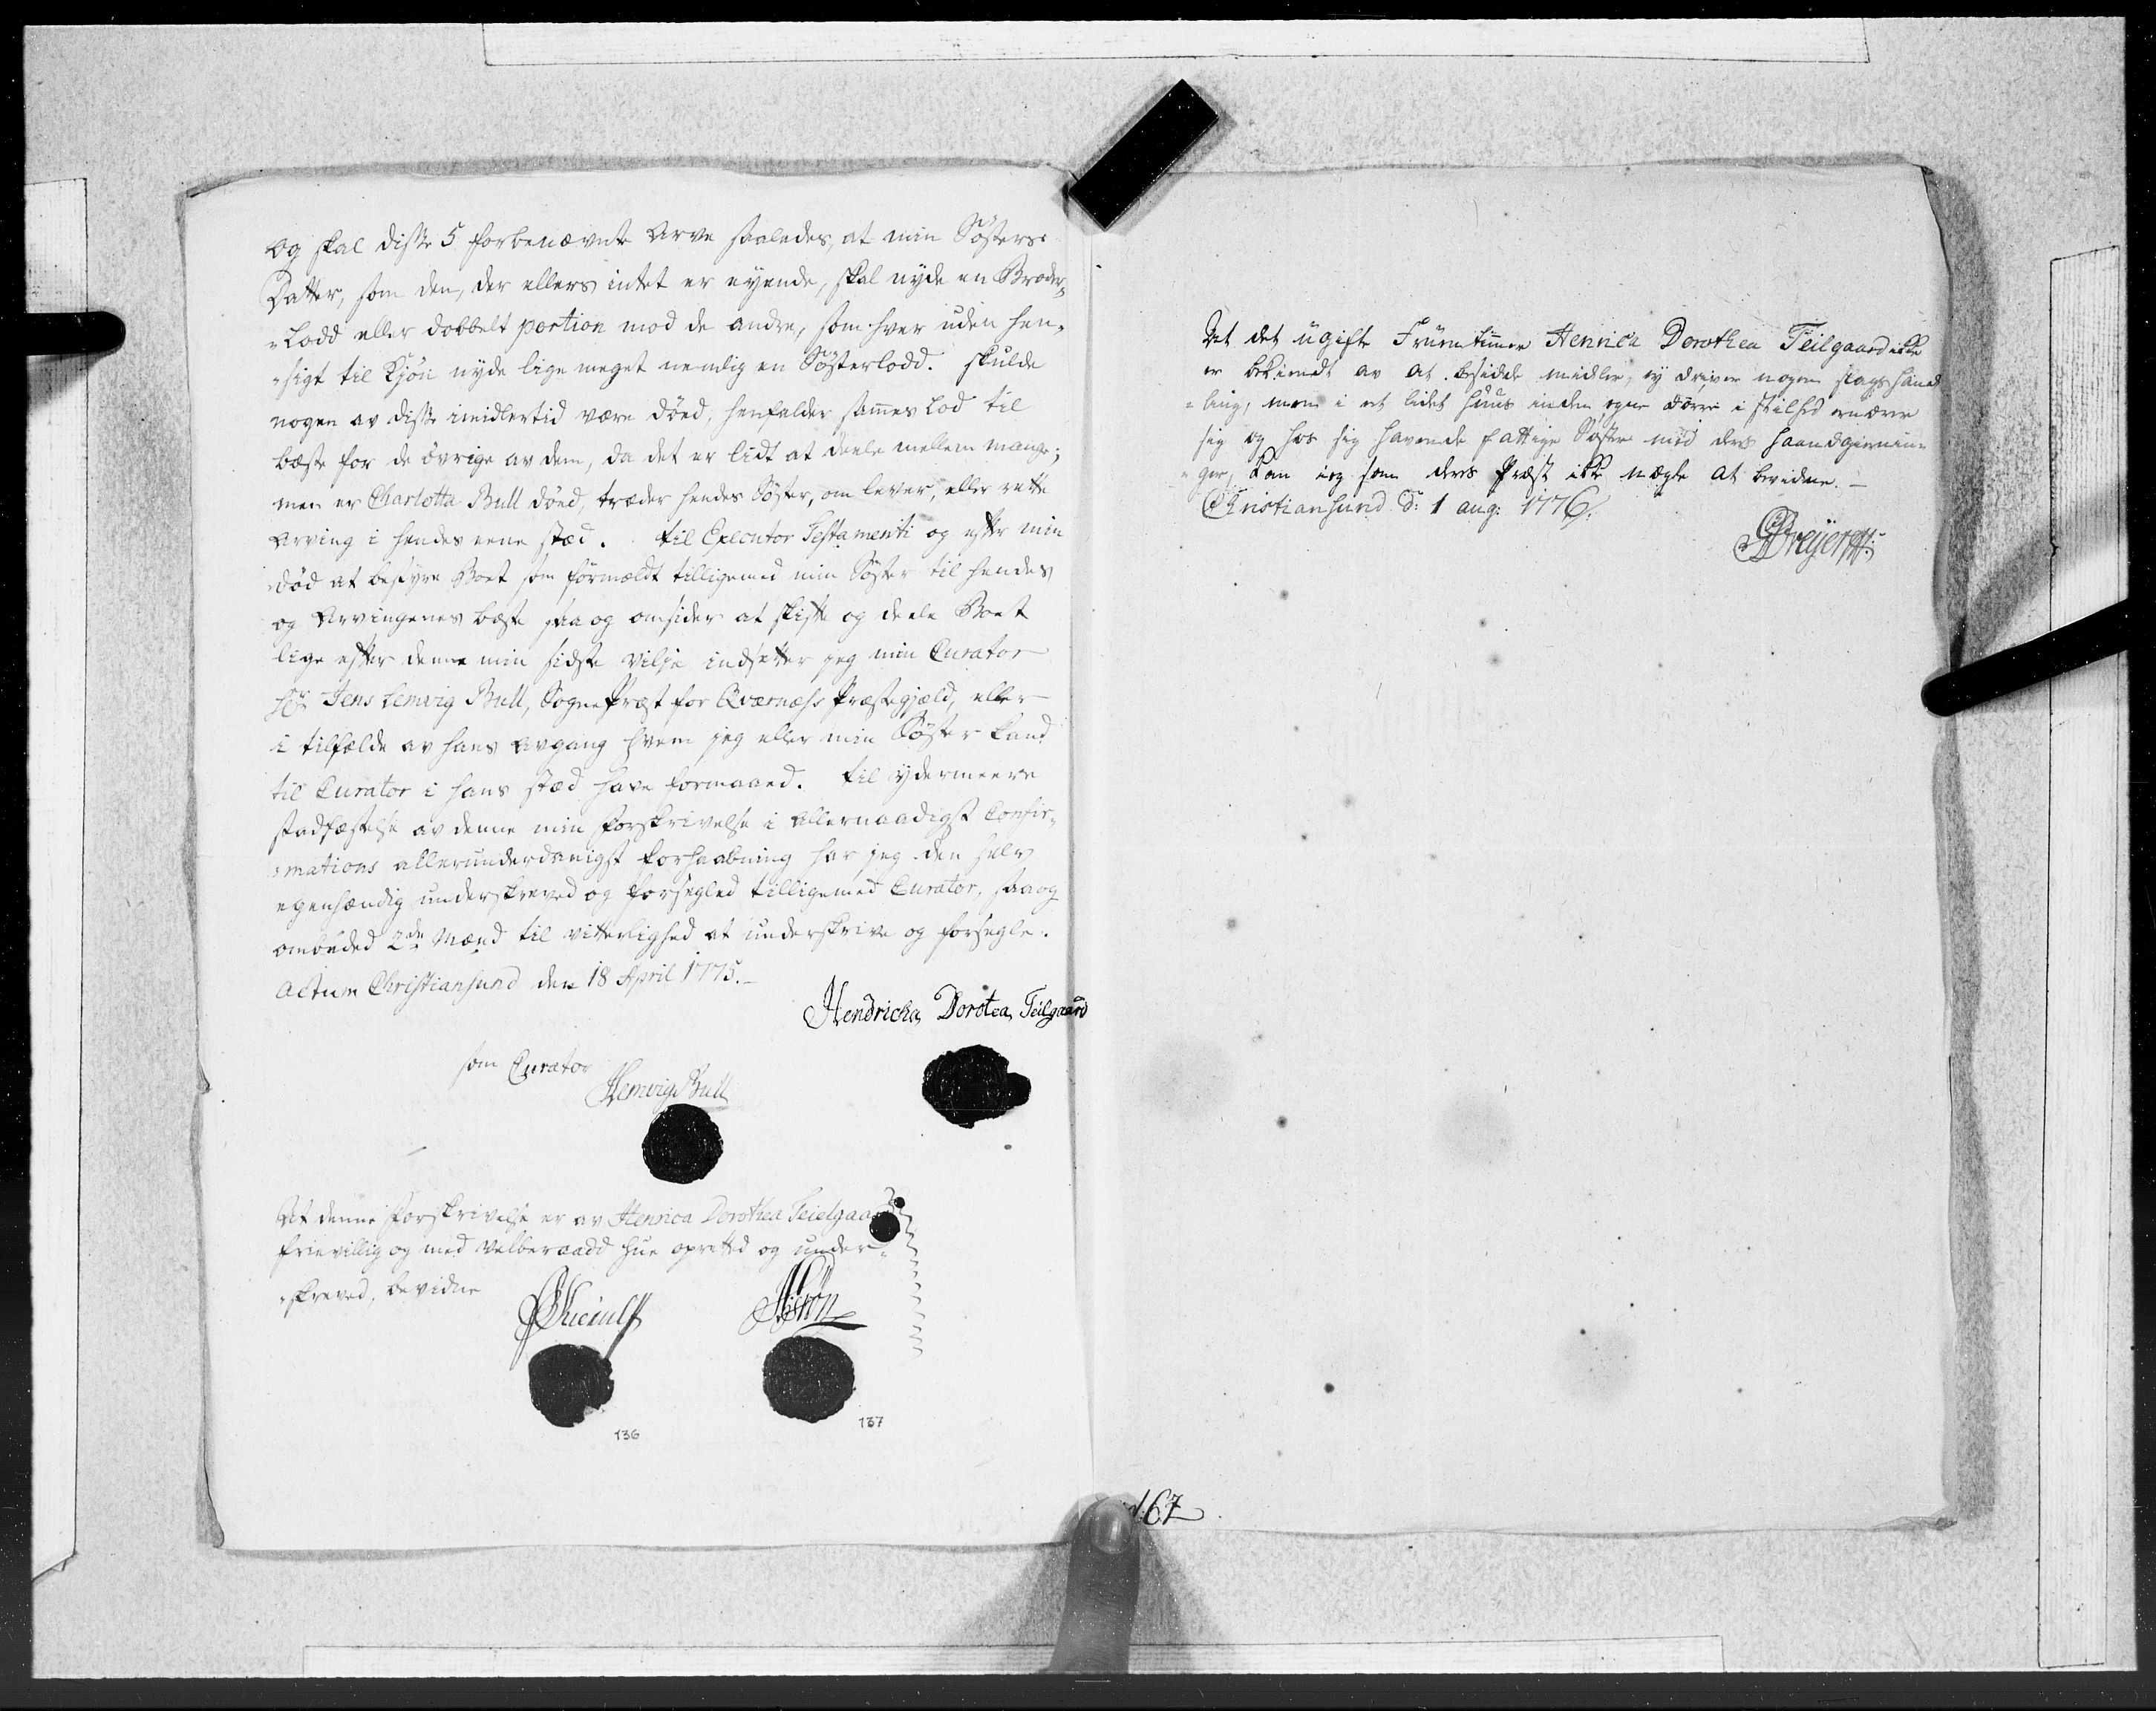 og skal disse 5 forbenævnte Arve saaledes, at min Søsters
Datter, som den, der ellers intet er eyende, skal nyde en Broder,,
,,Lodd eller dobbelt portion mod de andre, som hver uden hen,,
,,sigt til Kjøn nyde lige meget nemlig en Søsterlodd. skulde
nogen av disse imidlertid være død, henfalder sammes Lod til
bæste for de øvrige av dem, da det er lidt at deele mellem mange;
men er Charlotta Bull død, træder hendes Søster, om lever, eller rette
Arving i hendes eene stæd. til Executor Testamenti og efter min
død at bestyre Boet som formældt tilligemed min Søster til hendes
og Arvingenes bæste saa og omsider at skifte og deele Boet
lige efter denne min sidste vilje indsetter jeg min Curator
Hr. Jens Lemvig Bull, SognePræst for Qværnæss Præstegjæld, eller
i tilfælde av hans Avgang hvem jeg eller min Søster kand
til Curator i hans stæd have formaaed. til ydermeere
stadfæstelse av denne min forskrivelse i Allernaadigst Confir,,
,,mations allerunderdanigst forhaabning har jeg den selv
egenhændig underskreved og forseglet tilligemed Curator, saa og
ombuded 2de Mænd til vitterlighed at underskrive og forsegle.
Actum Christiansund den 18 April 1775.
Hendricka Dorotea Teilgaard
som Curator
JLemvig Bull
At denne forskrivelse er av Henrica Dorothea Teielgaard
frievillig og med velberaadd hue opretted og under=
,,skreved, bevidne
136
137
At det ugifte Fruentimmer Henrica Dorothea Teilgaard ikke
er bekiendt av at besidde midler, ey driver nogen slags hand
=ling, men i et lidet huus inden egne dørre i stilhed ernærer
sig og hos sig havende fattige Søster med ders haandgiernin=
=ger, kan ieg som ders Præst ikke nægte at bevidne. –
Christiansund d: 1 aug: 1776.
Dreyer
167